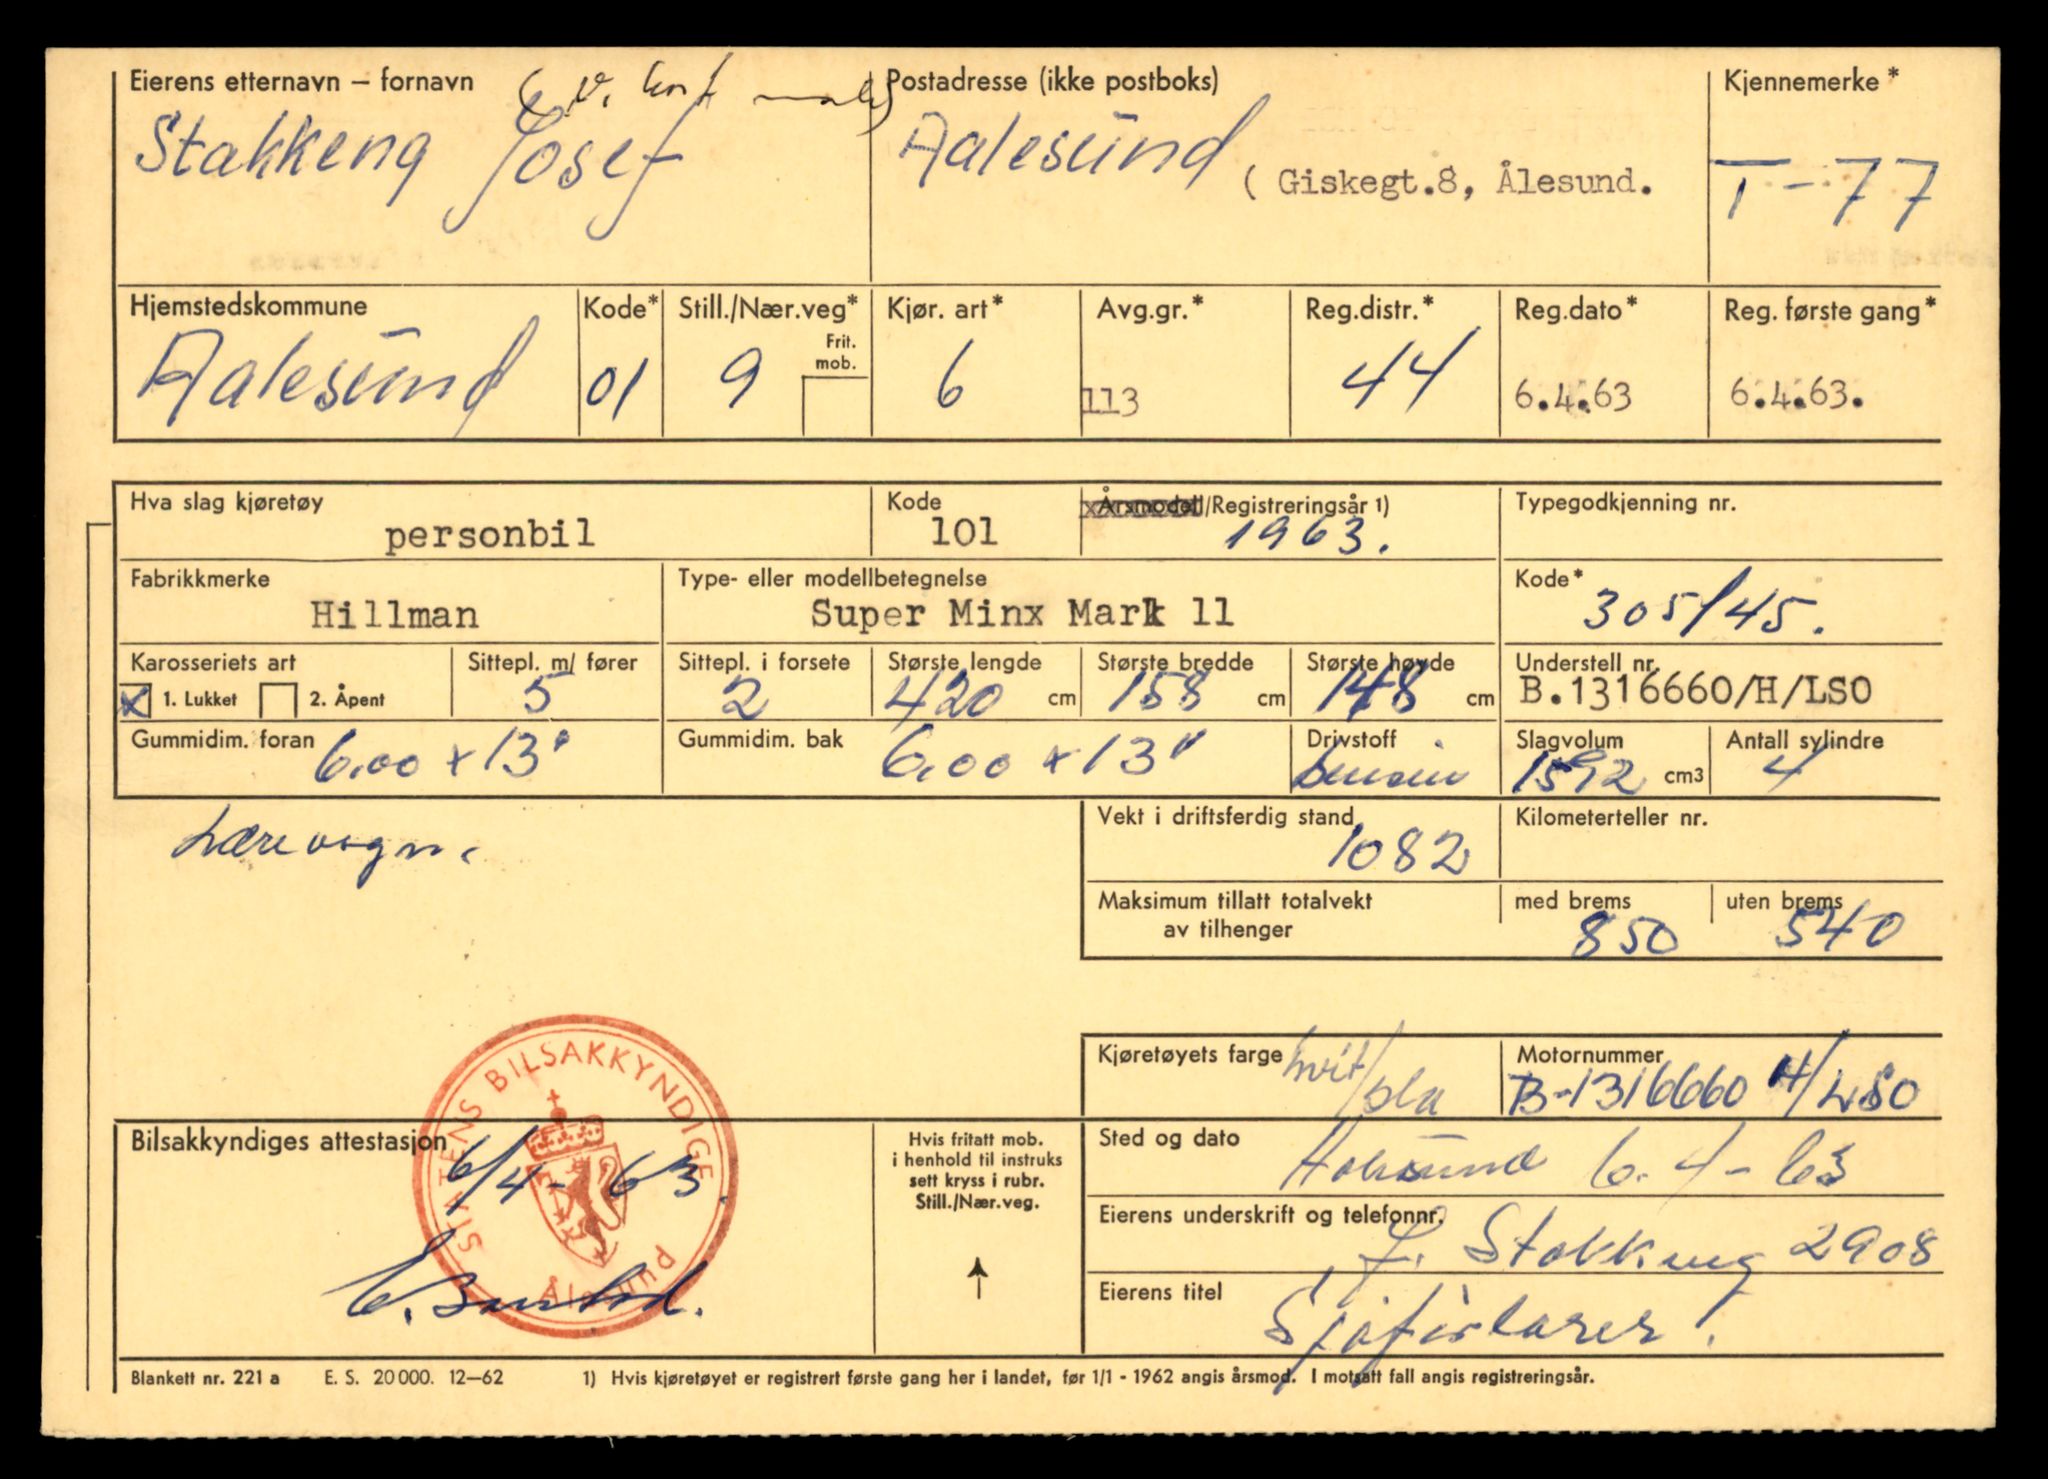 Eierens etternavn – fornavn
Stakkeng Josef
Postadresse (ikke postboks)
Aalesund (Giskegt.8, Ålesund.
Kjennemerke*
T-77
Hjemstedskommune
Aalesund
Kode*
01
Still./Nær.veg*
9
Frit. mob.
Kjør. art*
6
Avg.gr.*
113
Reg.distr.*
44
Reg.dato*
6.4.63
Reg. første gang*
6.4.63.
Hva slag kjøretøy
personbil
Kode
101
Årsmodell/Registreringsår 1)
1963.
Typegodkjenning nr.
Fabrikkmerke
Hillman
Type- eller modellbetegnelse
Super Minx Mark 11
Kode*
305/45.
Karosseriets art
x 1. Lukket 2. Åpent
Sittepl. m/ fører
5
Sittepl. i forsete
2
Største lengde
420 cm
Største bredde
158 cm
Største høyde
148 cm
Understell nr.
B.1316660/H/LSO
Gummidim. foran
6.00 x 13"
Gummidim. bak
6.00 x 13"
Drivstoff
bensin
Slagvolum
1592 cm3
Antall sylindre
4
Lærevogn.
Vekt i driftsferdig stand
1082
Kilometerteller nr.
Maksimum tillatt totalvekt
av tilhenger
med brems
850
uten brems
540
Kjøretøyets farge
hvit/blå
Motornummer
B-1316660 H/LSO
STATENS BILSAKKYNDIGE
Ålesund
Bilsakkyndiges attestasjon
6/4-63.
Hvis fritatt mob.
i henhold til instruks
sett kryss i rubr.
Still./Nær.veg.
Sted og dato
Aalesund 6.4-63
Eierens underskrift og telefonnr.
J. Stakkeng 2908
Eierens titel
Sjåførlærer.
Blankett nr. 221 a E. S. 20 000. 12—62 1) Hvis kjøretøyet er registrert første gang her i landet, før 1/1 - 1962 angis årsmod. I motsatt fall angis registreringsår.